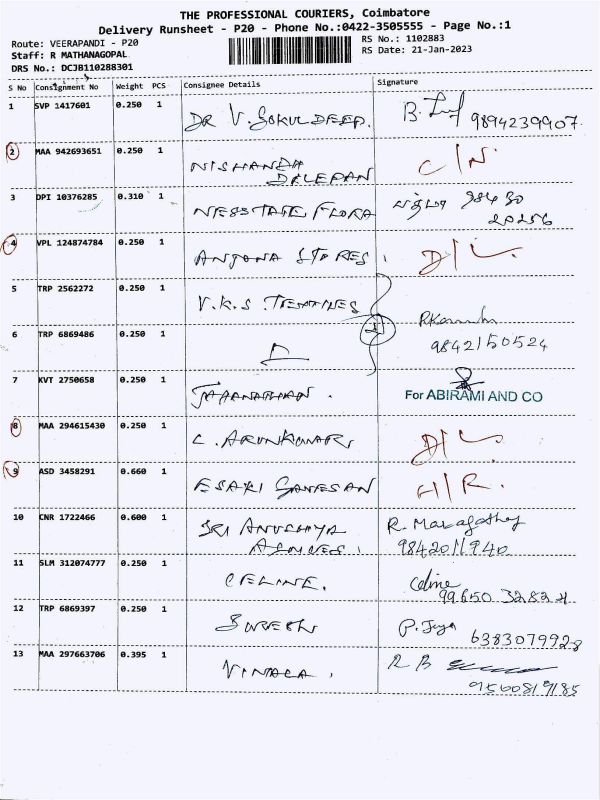 THE PROFESSIONAL COURIERS, Coimbatore
Delivery Runsheet - P20 - Phone No.:0422-3505555 - Page No.:1
Route: VEERAPANDI - P20
RS No.: 1102883
Staff: R MATHANAGOPAL
RS Date: 21-Jan-2023
DRS No.: DCJB110288301
S No Consignment No Weight PCS Consignee Details Signature
1 SVP 1417601 0.250 1 DR V. GOKULDEEP. 9894239907
2 MAA 942693651 0.250 1 NISHANDH C/N
3 DPI 10376285 0.310 1 FLORA 98430
20256
4 VPL 124874784 0.250 1 ANJONA STORES D/L
5 TRP 2562272 0.250 1 V.K.S
6 TRP 6869486 0.250 1 9842150524
7 KVT 2750658 0.250 1 For ABIRAMI AND CO
8 MAA 294615430 0.250 1 C. ARUNKUMAR D/L
9 ASD 3458291 0.660 1 ESAKI GANESAN H/R.
10 CNR 1722466 0.600 1 SRI R.
9842011940
11 SLM 312074777 0.250 1 CELINE. Celine
99650 32824
12 TRP 6869397 0.250 1 SURESH P. Jaya 6383079928
13 MAA 297663706 0.395 1 R B
9500819185